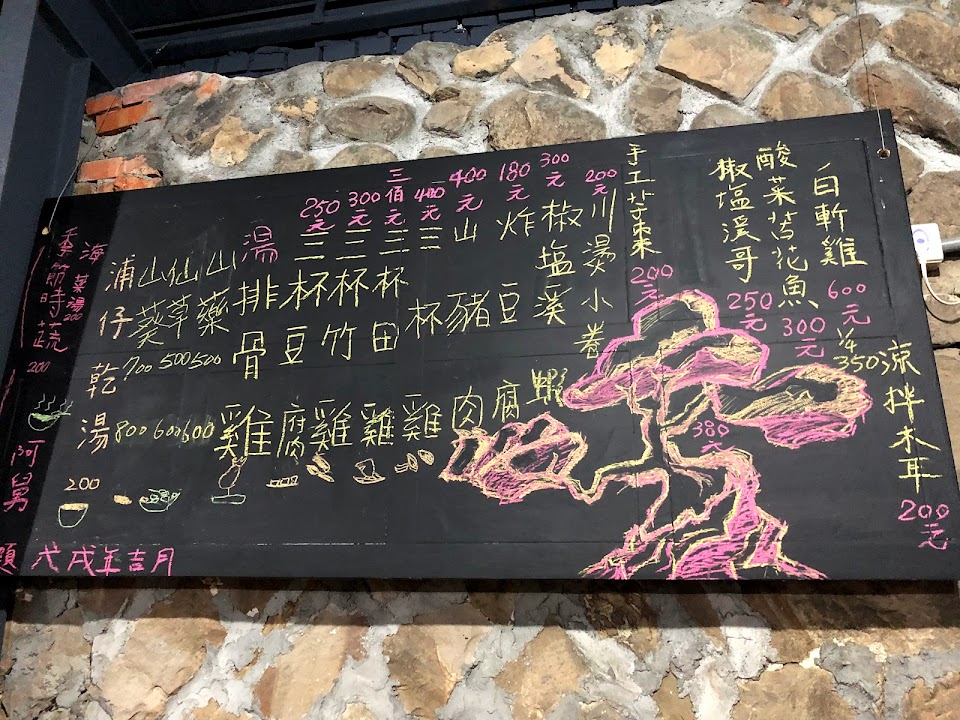 涼拌木耳 200元
白斬雞 600元 1/4 350
酸菜苦花魚 300元
椒塩溪哥 250元
380元
手工芋棗 200元
200元 川燙小卷
300元 椒塩溪蝦
180元 炸豆腐
400元 山豬肉
400元 三杯雞
三佰元 三杯田雞
300元 三杯竹雞
250元 三杯豆腐
湯排骨雞
山藥 500 600
仙草 500 600
山葵 700 800
浦仔乾湯 200
海菜湯 200
季節時蔬 200
阿舅題
戊戌年吉月